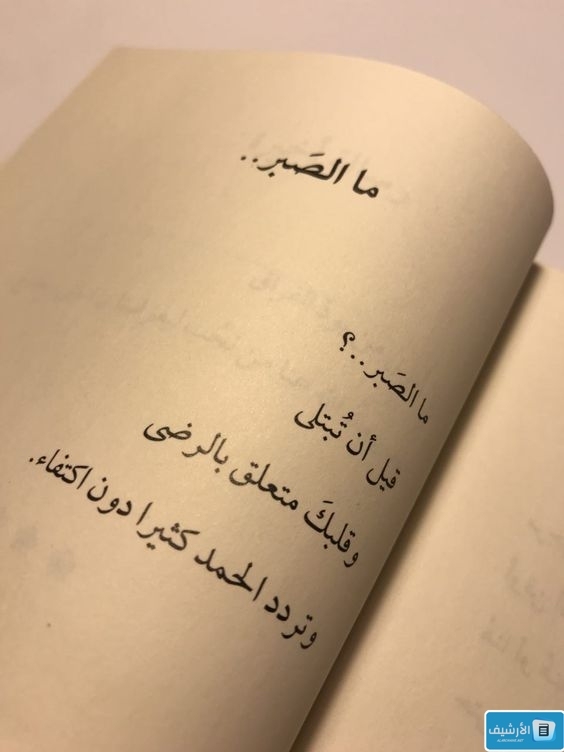 ما الصَبر..
ما الصَبر..؟
قيل أن تُبتلى
وقلبكَ متعلق بالرضى
وتردد الحمد كثيرا دون اكتفاء.
الأرشيف